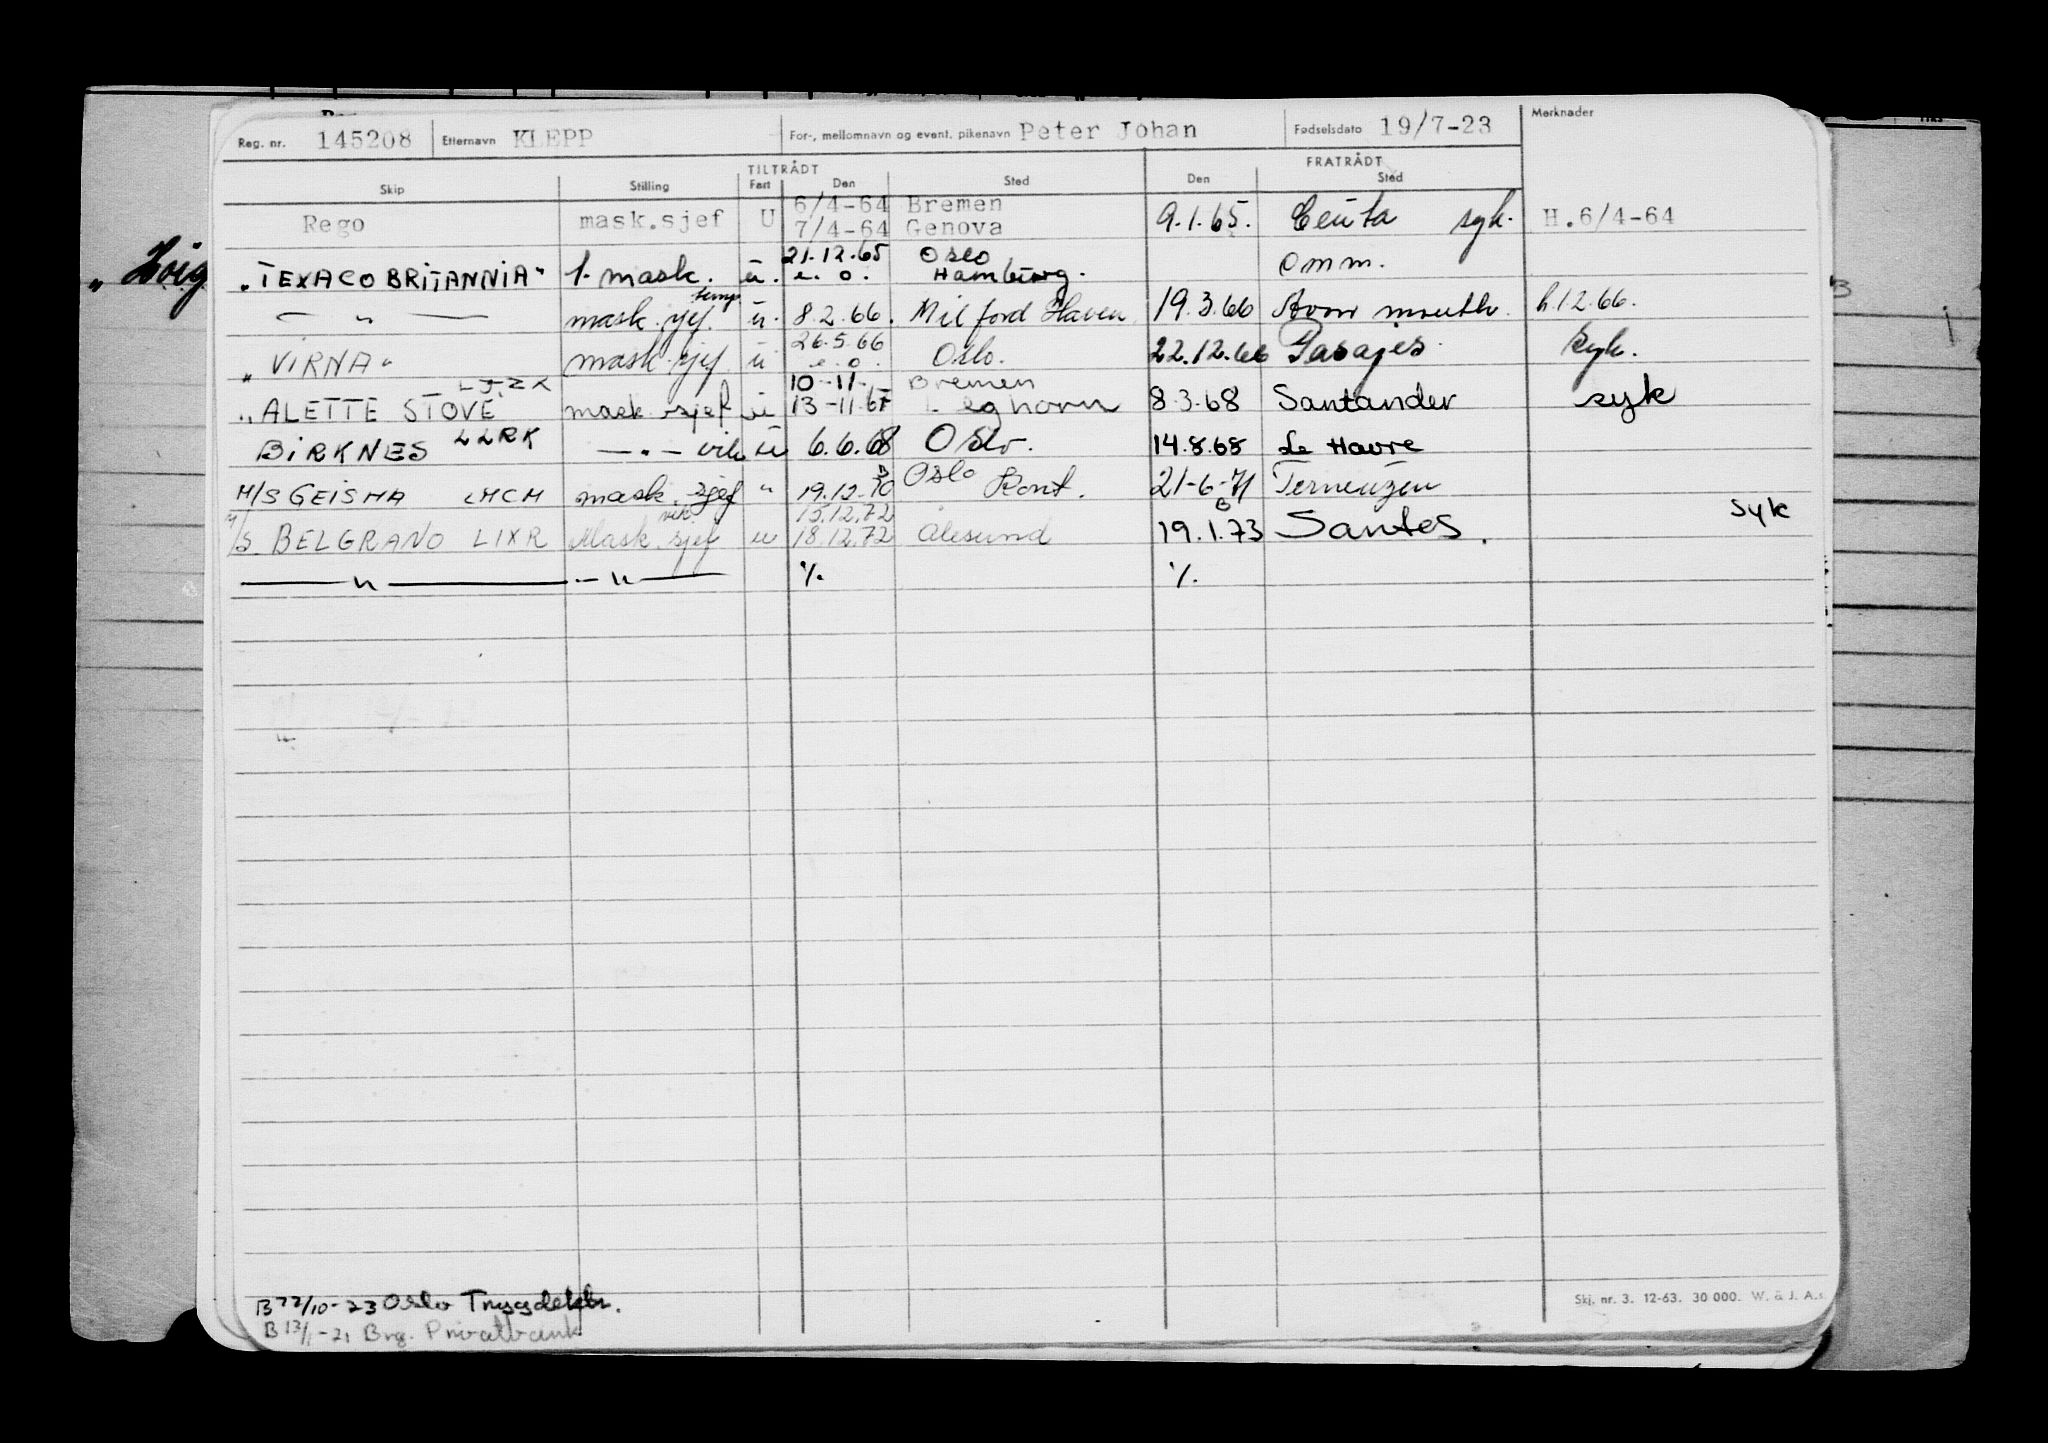 Reg. nr. 145208 Etternavn KLEPP For-, mellomnavn og event. pikenavn Peter Johan Fødselsdato 19/7-23 Merknader
TILTRÅDT FRATRÅDT
Skip Stilling Fart Den Sted Den Sted
6/4-64 Bremen
Rego mask.sjef U 7/4-64 Genova 9.1.65. Ceuta syk. H.6/4-64
21.12.65 Oslo
"TEXACO BRITANNIA" 1. mask. u. e. o. Hamburg. Omm.
temp
— " — mask. sjef. u. 8.2.66. Milford Haven 19.3.66 Avonmouth. h.12.66.
26.5.66
"VIRNA" mask. sjef u e. o. Oslo. 22.12.66 Pasajes syk.
LJZK 10-11- Bremen
"ALETTE STOVE" mask. sjef u 13-11.67 Leghorn 8.3.68 Santander syk
BIRKNES LLRK — " — vik u 6.6.68 Oslo. 14.8.68 Le Havre
M/S GEISHA LMCM mask. sjef " 19.12.70 Oslo Kont. 21-6-71 Terneuzen
vik. 15.12.72
M/S BELGRANO LIXR Mask. sjef u 18.12.72 Ålesund 19.1.73 Santos. syk
— " — — " — %. %.
"Hoig
B 22/10-23 Oslo Trygdektr.
B 13/1-21 Brg. Privatbank
Skj. nr. 3. 12-63. 30 000. W. & J. A.s